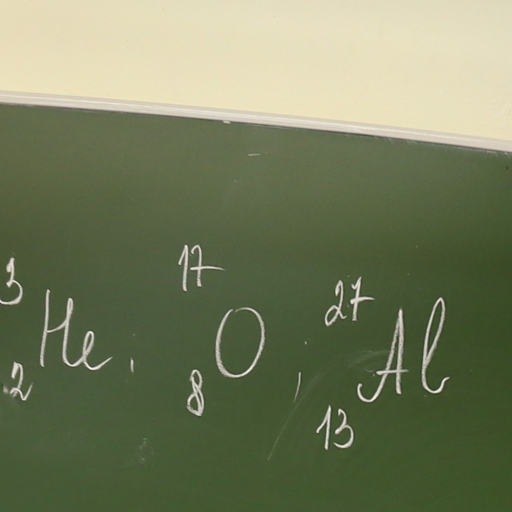 ³₂He, ¹⁷₈O, ²⁷₁₃Al